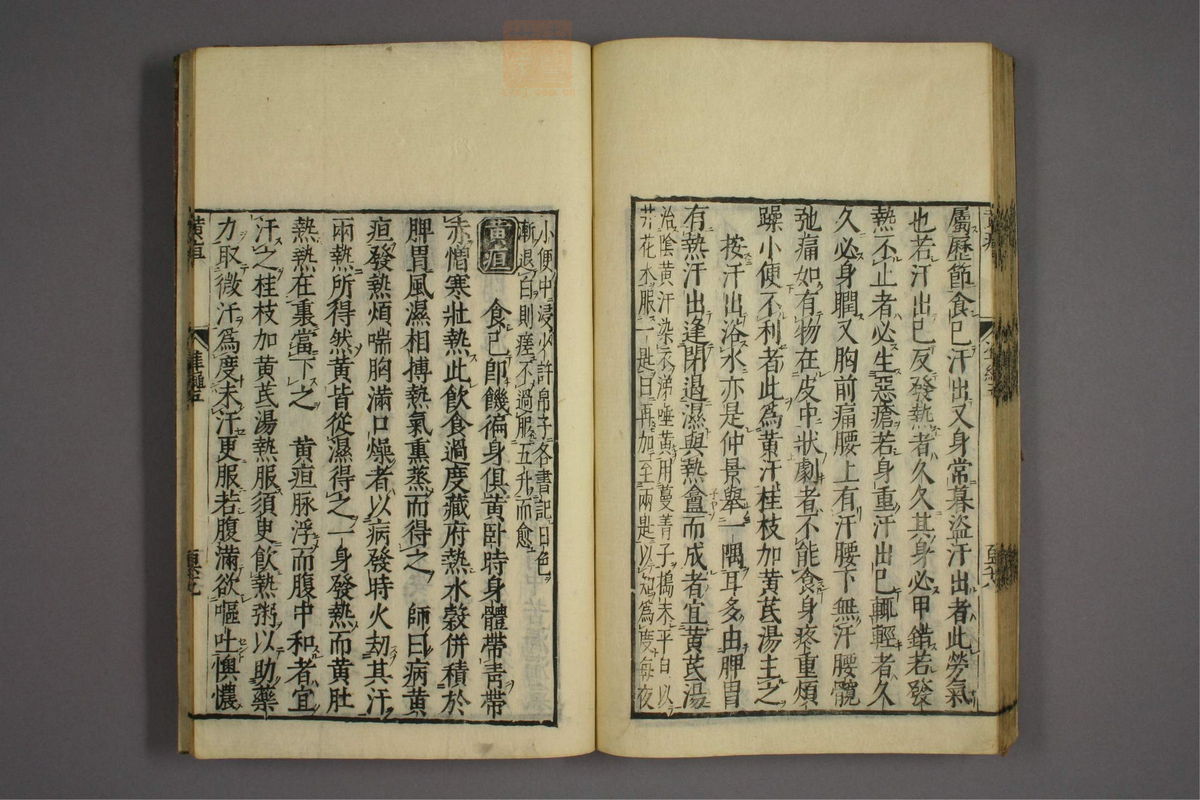 屬歷節食已汗出又身常暮盜汗出者此勞氣
也若汗出已反發熱者久久其身必甲錯若發
熱不止者必生惡瘡若身重汗出已輒輕者久
久必身瞤又胸前痛腰上有汗腰下無汗腰髖
弛痛如有物在皮中狀劇者不能食身疼重煩
躁小便不利者此爲黃汗桂枝加黃芪湯主之
按汗出浴水亦是仲景舉一隅耳多由脾胃
有熱汗出逢閉遏濕與熱盦而成者宜黃芪湯
治陰黃汗染衣涕唾黃用蔓菁子搗末平白以
井花水服一匙日再加至兩匙以知爲度每夜
小便中浸少許帛子各書記日色
漸退白則瘥不過服五升而愈
黃疸 食已卽饑徧身俱黃臥時身體帶靑帶
赤憎寒壯熱此飮食過度藏府熱水穀併積於
脾胃風濕相搏熱氣熏蒸而得之 師曰病黃
疸發熱煩喘胸滿口燥者以病發時火劫其汗
兩熱所得然黃皆從濕得之一身發熱而黃肚
熱熱在裏當下之 黃疸脉浮而腹中和者宜
汗之桂枝加黃芪湯熱服須臾飮熱粥以助藥
力取微汗爲度未汗更服若腹滿欲嘔吐懊憹
黃疸